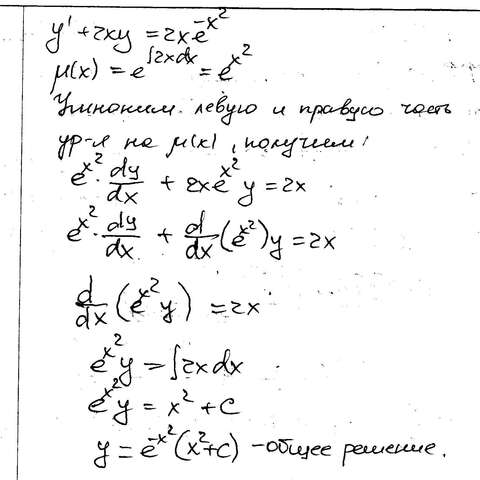 y' + 2xy = 2xe^{-x^2}
μ(x) = e^{∫2xdx} = e^{x^2}
Умножим левую и правую часть
ур-я на μ(x), получим:
e^{x^2} · dy/dx + 2xe^{x^2} y = 2x
e^{x^2} · dy/dx + d/dx (e^{x^2})y = 2x
d/dx (e^{x^2} y) = 2x
e^{x^2} y = ∫2xdx
e^{x^2} y = x^2 + C
y = e^{-x^2}(x^2+C) - общее решение.